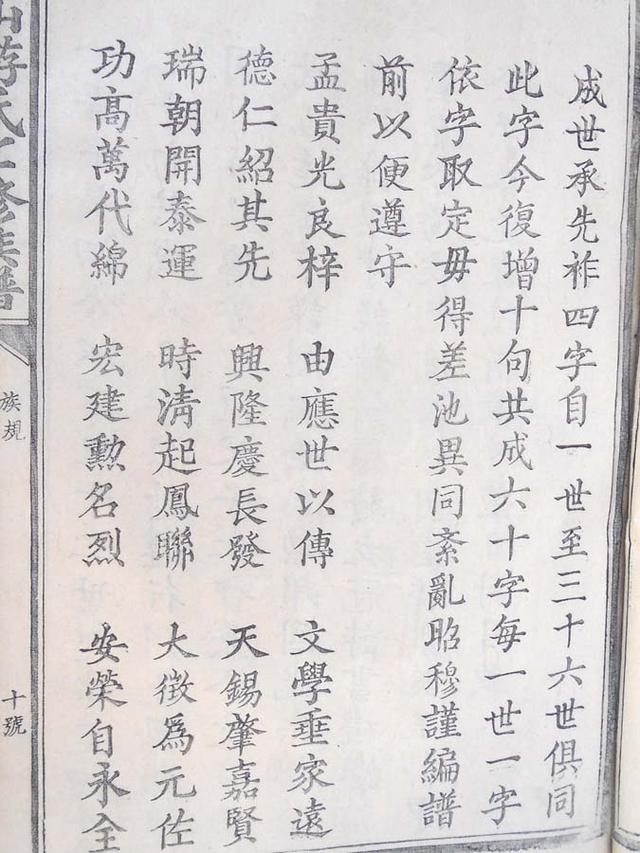 成世承先祚四字自一世至三十六世俱同
此字今復增十句共成六十字每一世一字
依字取定毋得差池異同紊亂昭穆謹編譜
前以便遵守
孟貴光良梓 由應世以傳 文學垂家遠
德仁紹其先 興隆慶長發 天錫肇嘉賢
瑞朝開泰運 時清起鳳聯 大徵為元佐
功高萬代綿 宏建勳名烈 安榮自永全
族規
十號